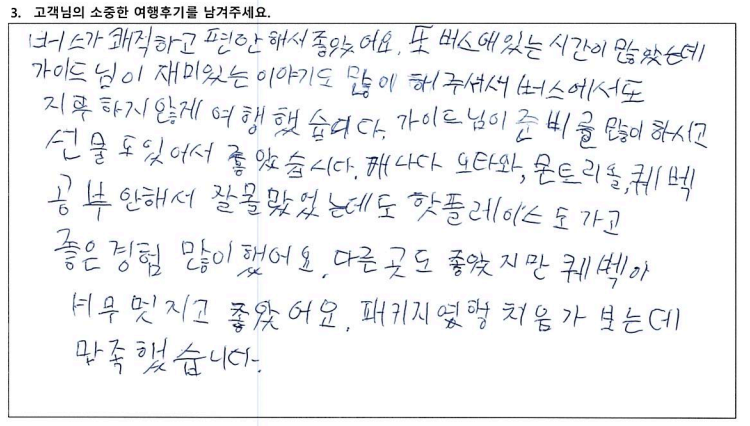 3. 고객님의 소중한 여행후기를 남겨주세요.
버스가 쾌적하고 편안해서 좋았어요. 또 버스에 있는 시간이 많았는데
가이드님이 재미있는 이야기도 많이 해주셔서 버스에서도
지루하지 않게 여행했습니다. 가이드님이 준비를 많이 하시고
선물도 있어서 좋았습니다. 캐나다 오타와, 몬토리올, 퀘벡
공부 안해서 잘 몰랐었는데도 핫플레이스도 가고
좋은 경험 많이 했어요. 다른 곳도 좋았지만 퀘벡이
너무 멋지고 좋았어요. 패키지여행 처음 가보는데
만족했습니다.